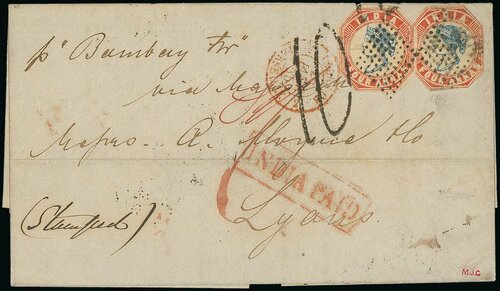 INDIA INDIA
FOUR ANNAS FOUR ANNAS
p "Bombay Str"
10
via Marseilles
Messrs A. & Co
INDIA PAID
Lyons
(Stamped)
M.J.C